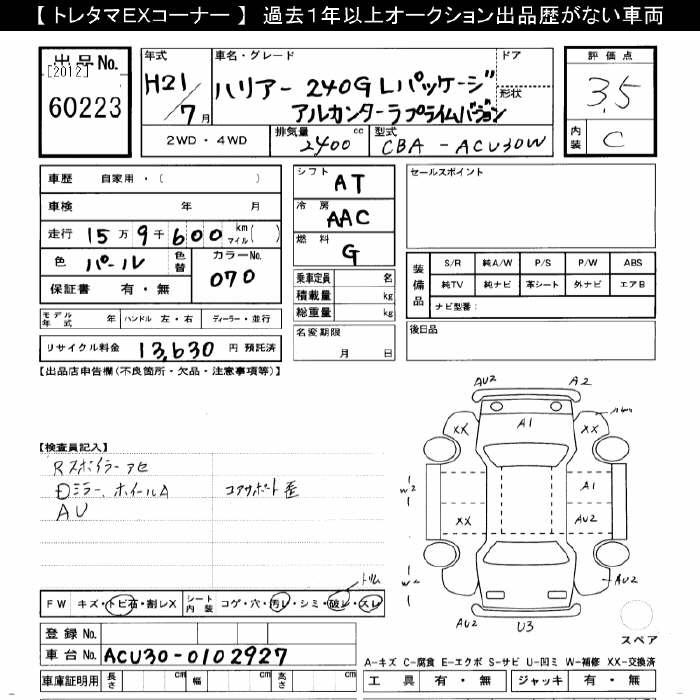 【 トレタマEXコーナー 】 過去1年以上オークション出品歴がない車両
出品No.
[2012]
60223
年式
H21/7月
車名・グレード
ハリアー 240G Lパッケージ
アルカンターラプライムバージョン
ドア
形状
2WD・4WD
排気量
2400cc
型式
CBA-ACU30W
評価点
3.5
内装
C
車歴 自家用・( )
車検 年 月
走行 15万9千600 km マイル( )
色 パール 色替 カラーNo. 070
保証書 有・無
モデル年式 年 ハンドル 左・右 ディーラー・並行
リサイクル料金 13,630 円 預託済
シフト AT
冷房 AAC
燃料 G
乗車定員 名
積載量 kg
総重量 kg
名変期限
月 日
セールスポイント
装備品
S/R 純A/W P/S P/W ABS
純TV 純ナビ 革シート 外ナビ エアB
ナビ型番:
後日品
【出品店申告欄(不良箇所・欠品・注意事項等)】
【検査員記入】
Rスポイラーアセ
ミラー、ホイールA
コアサポート歪
AU
トリム
FW キズ・トビ石・割レX シート内装 コゲ・穴・汚レ・シミ・破レ・スレ
登録No.
車台No. ACU30-0102927
車庫証明用 長さ cm 幅 cm 高さ cm
AU2 A2
XX A1 XX
W2 A1
XX AU2
W2 AU2
AU2 U3
スペア
A-キズ C-腐食 E-エクボ S-サビ U-凹ミ W-補修 XX-交換済
工具 有・無 ジャッキ 有・無